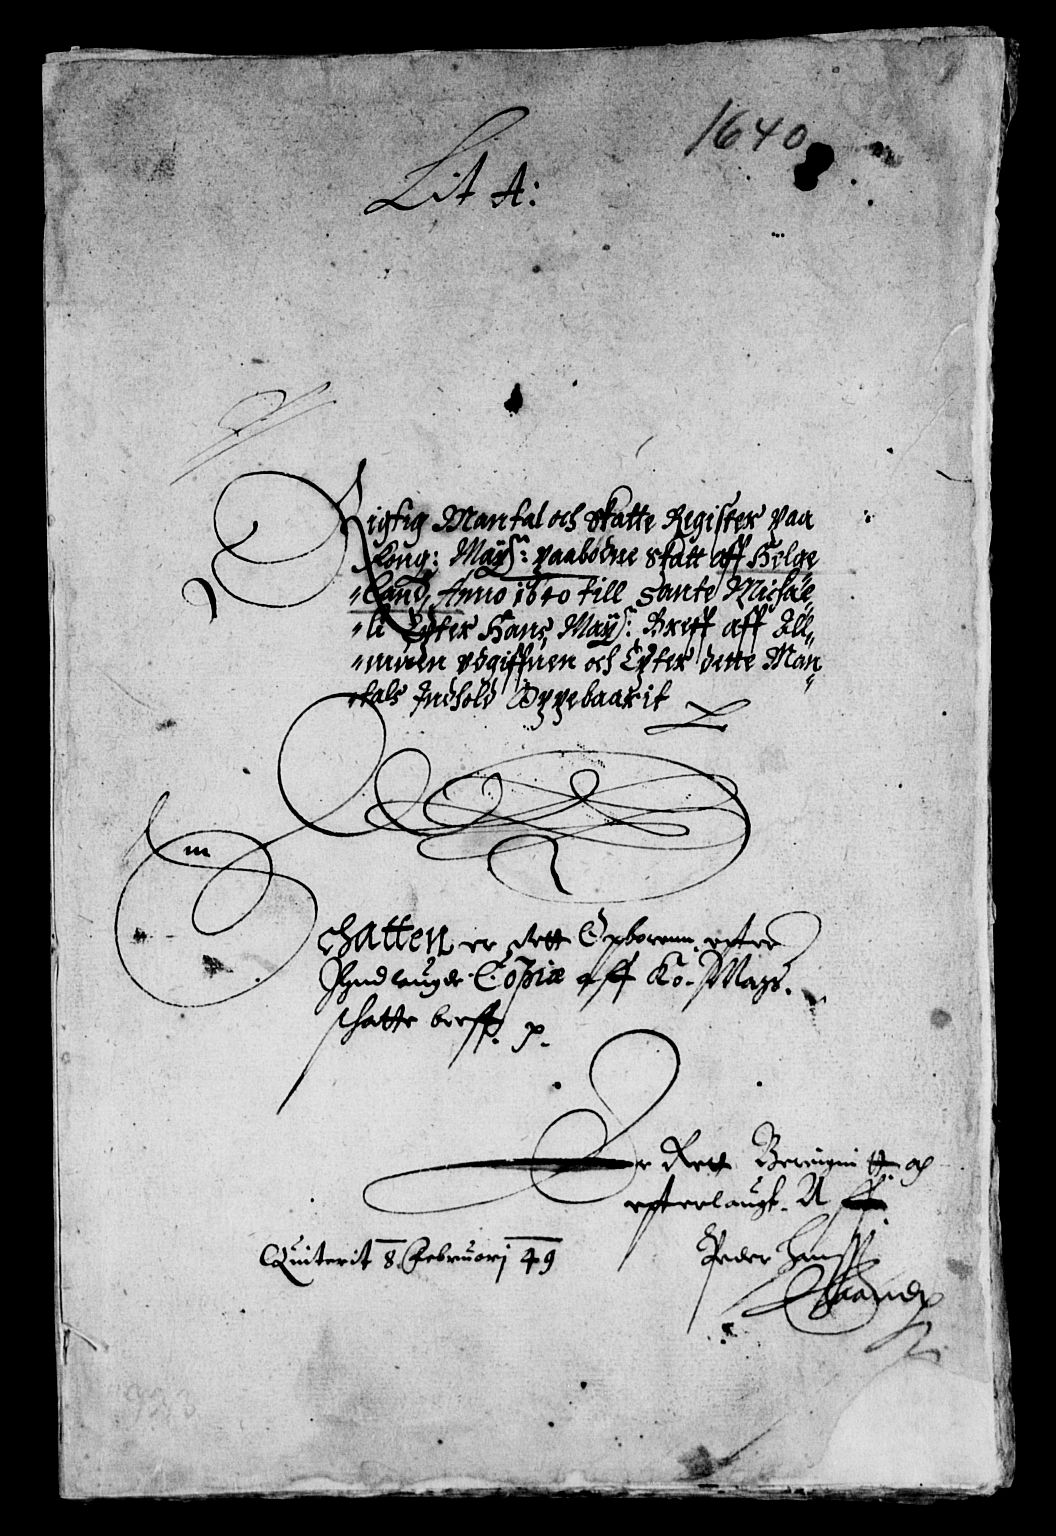 1640
Lit A:
Rigtig Mantal och Skatte Register paa
Kong: May: paabodne Skatt aff Helge
land, Anno 1640 till Sante Michae
li Epter Hans May: Breff aff All
muen udgiffuen och Epter dette Man
tals Indhold Oppebaarit
m
Schatten er Rett Opborenn efter
Indlaugde Copiæ aff Ko. Mays.
schatte breff. p.
Er Rett Beregnitt och
efterlaugt. A
Quiterit 8 Februarj 49
Peder Hanss